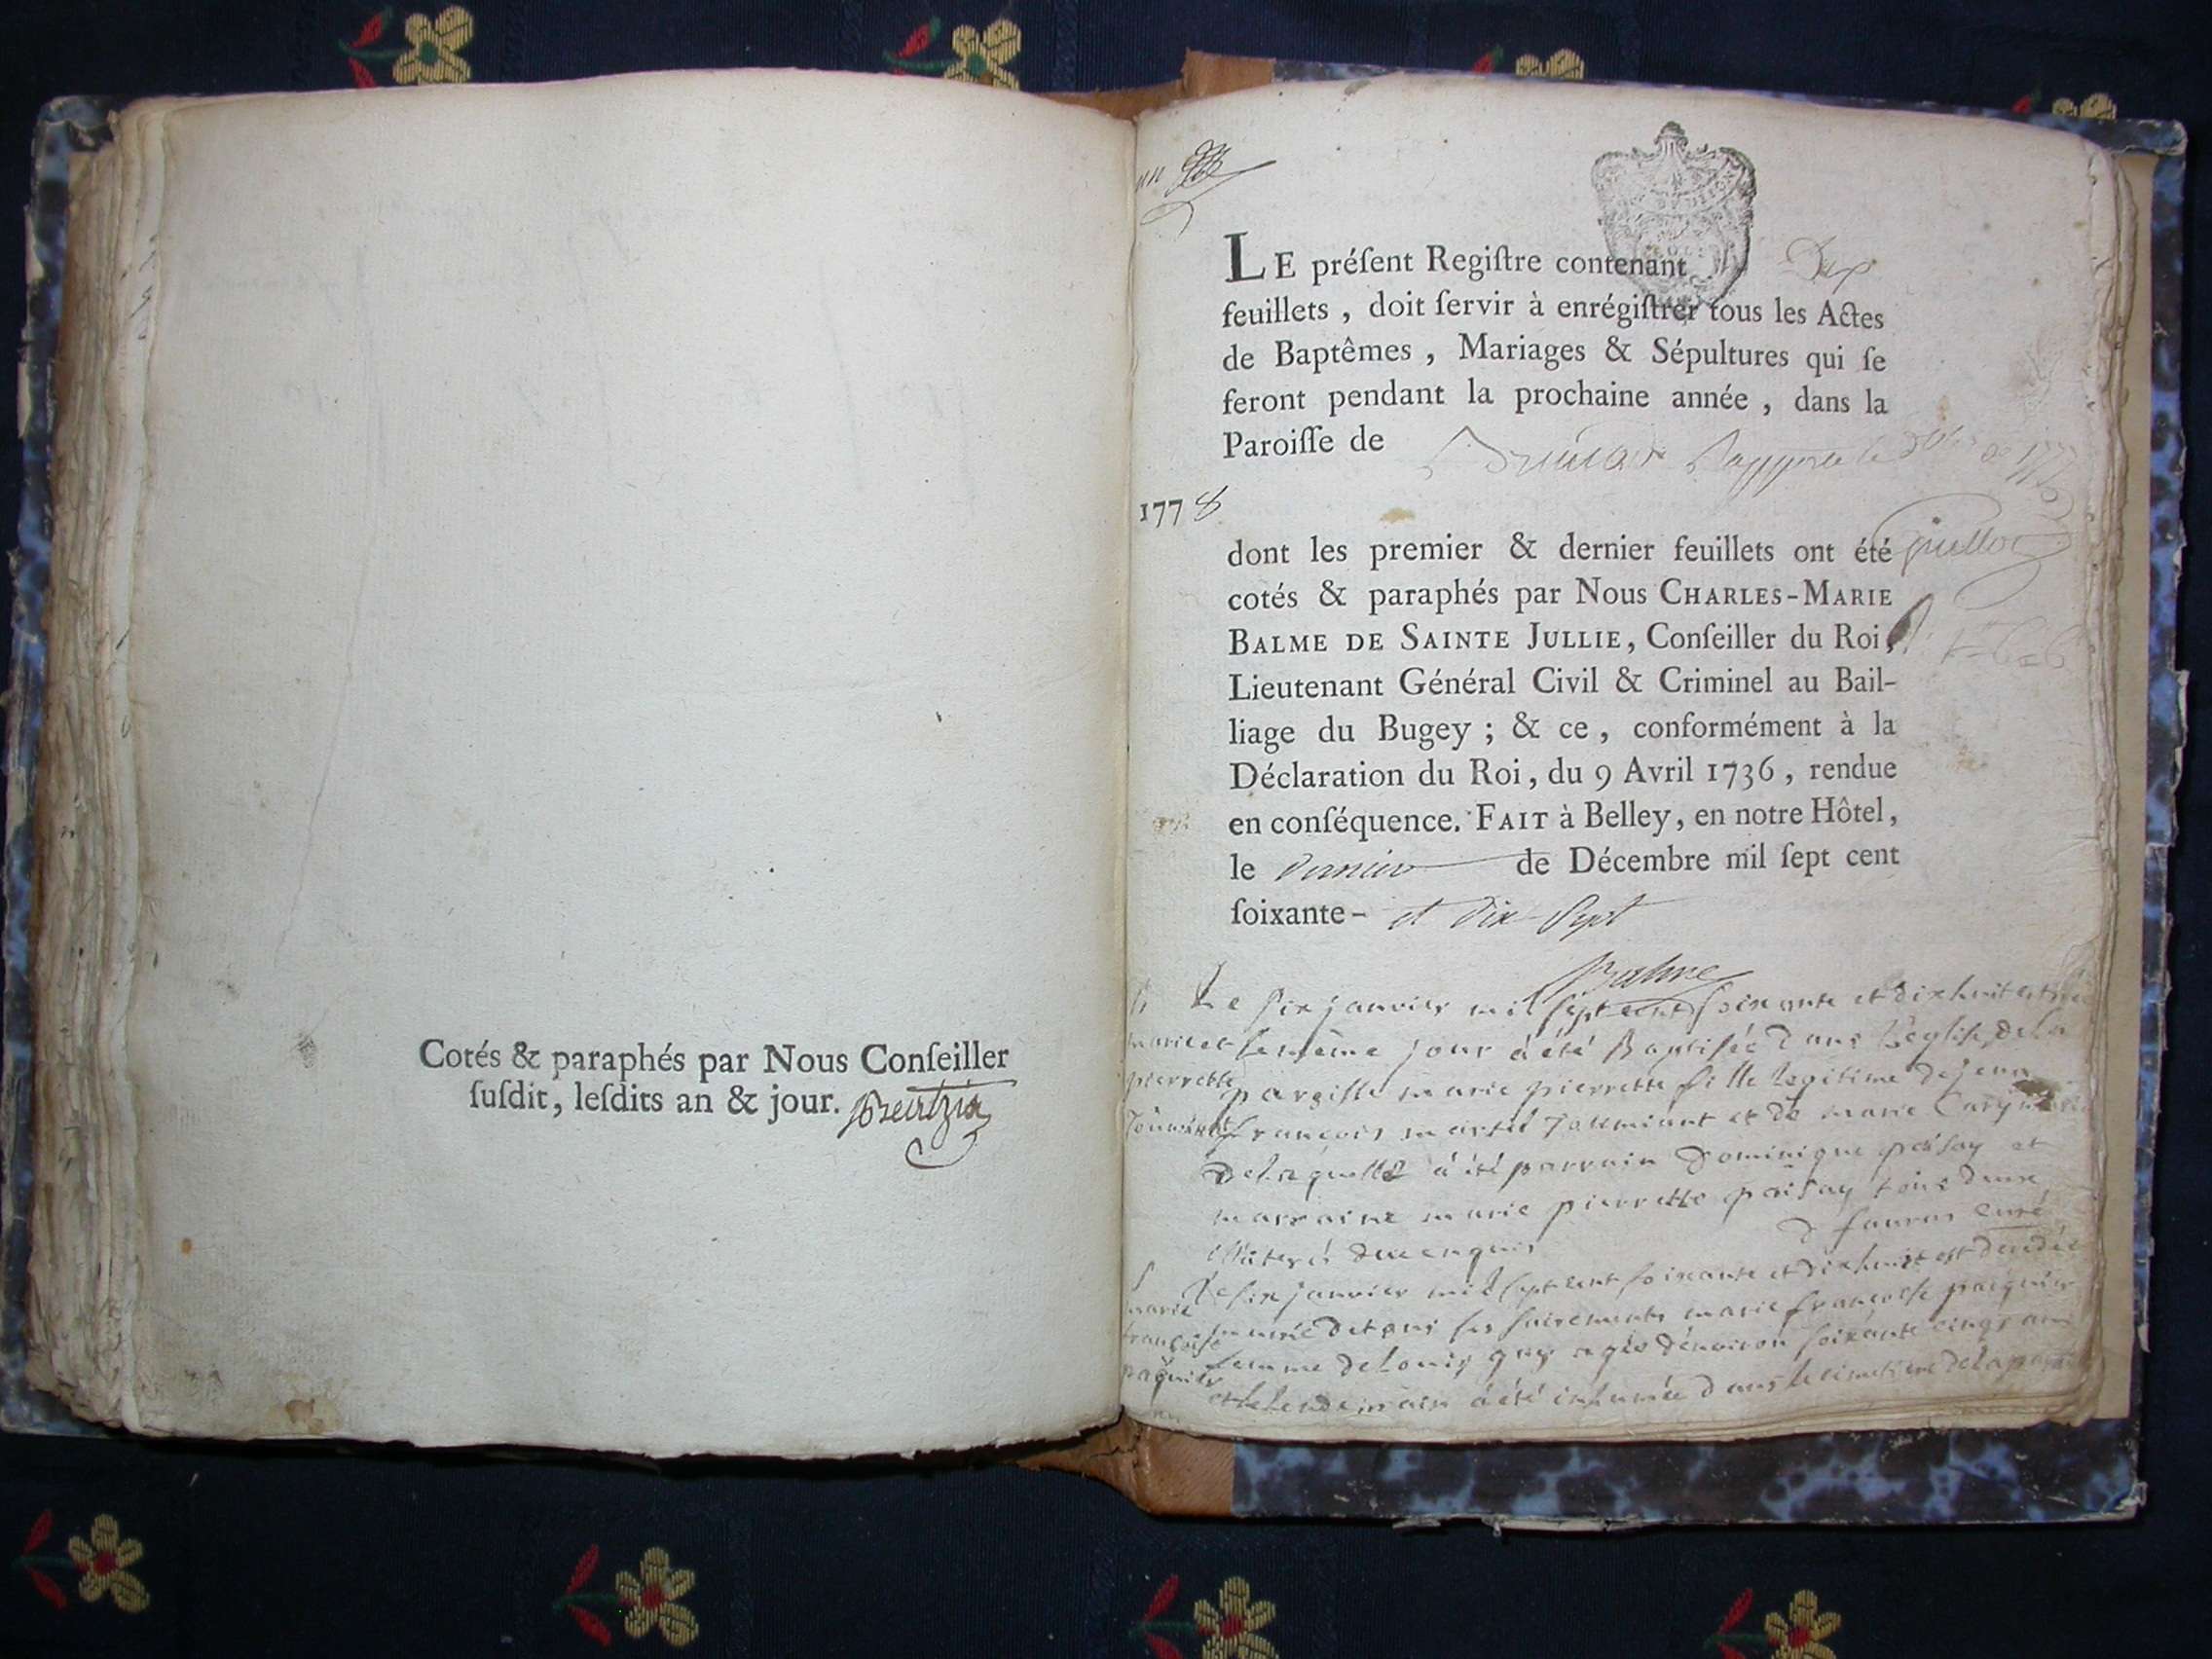 Cotés & paraphés par Nous Conſeiller
ſuſdit, leſdits an & jour.
un
LE préſent Regiſtre contenant
feuillets, doit ſervir à enrégiſtrer tous les Actes
de Baptêmes, Mariages & Sépultures qui ſe
feront pendant la prochaine année, dans la
Paroiſſe de
1778
dont les premier & dernier feuillets ont été
cotés & paraphés par Nous CHARLES-MARIE
BALME DE SAINTE JULLIE, Conſeiller du Roi,
Lieutenant Général Civil & Criminel au Bail-
liage du Bugey; & ce, conformément à la
Déclaration du Roi, du 9 Avril 1736, rendue
en conſéquence. FAIT à Belley, en notre Hôtel,
le dernier de Décembre mil ſept cent
ſoixante- et dix-Sept
Balme
Le six janvier mil sept cent soixante et dix huit est née
marie et le même jour a été Baptisée dans l'eglise de la
pierrette marie pierrette fille legitime de
françois martel et de marie
de laquelle a été parrain Dominique paisay et
marraine marie pierrette paisay tous deux
curé
Le six janvier mil sept cent soixante et dix huit est
marie munie de tous ses sacrements marie françoise
françoise femme de Louis guy agée d'environ soixante cinq ans
et le lendemain a été inhumée dans le cimetiere de la